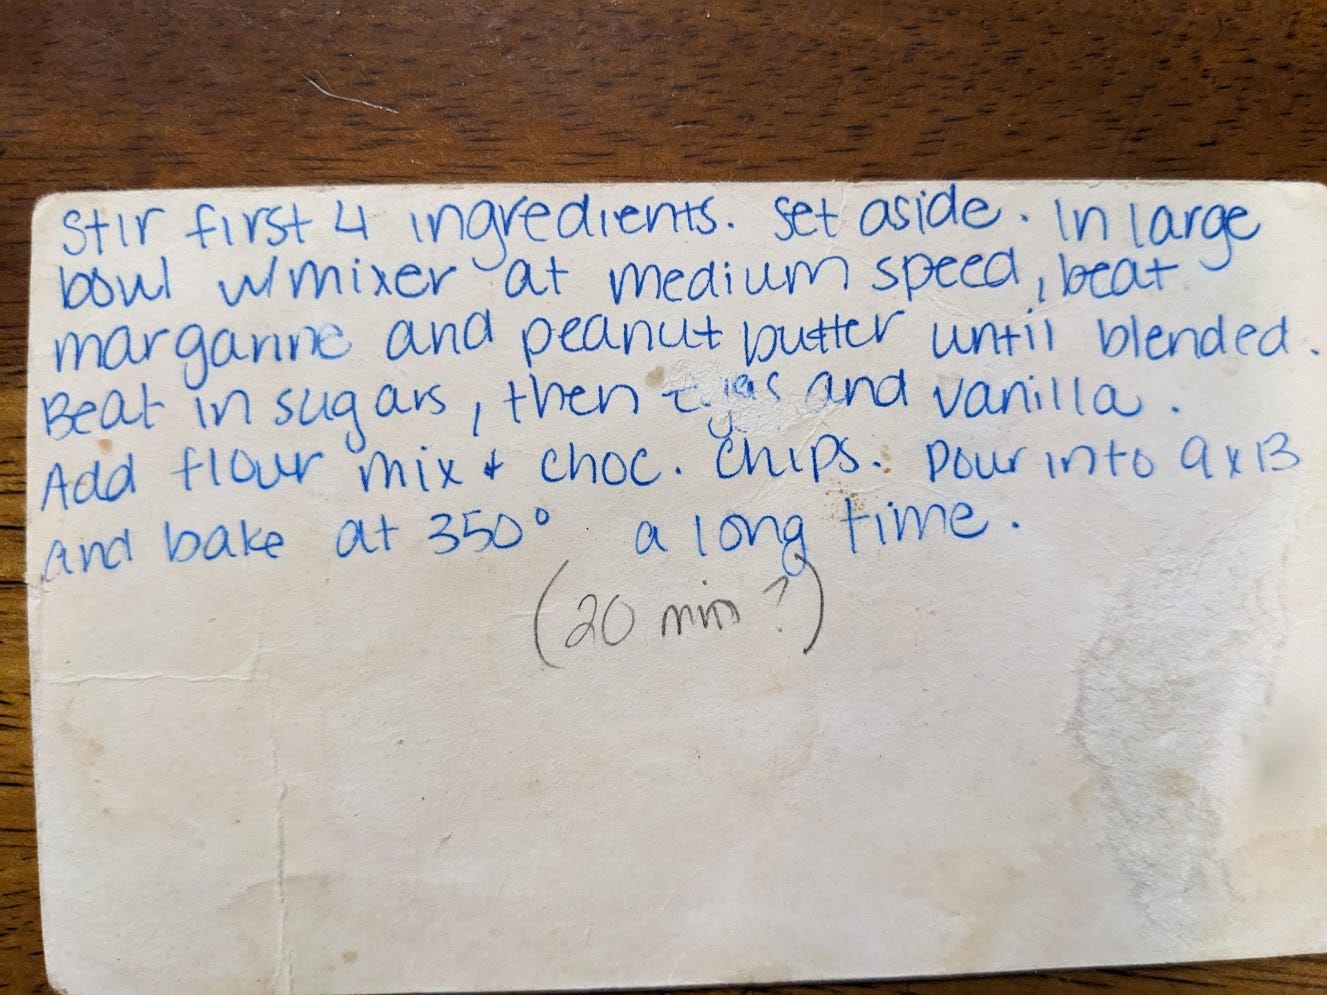 Stir first 4 ingredients. Set aside. In large
bowl w/mixer at medium speed, beat
margarine and peanut butter until blended.
Beat in sugars, then and vanilla.
Add flour mix & choc. chips. Pour into 9x13
and bake at 350° a long time.
(20 min?)